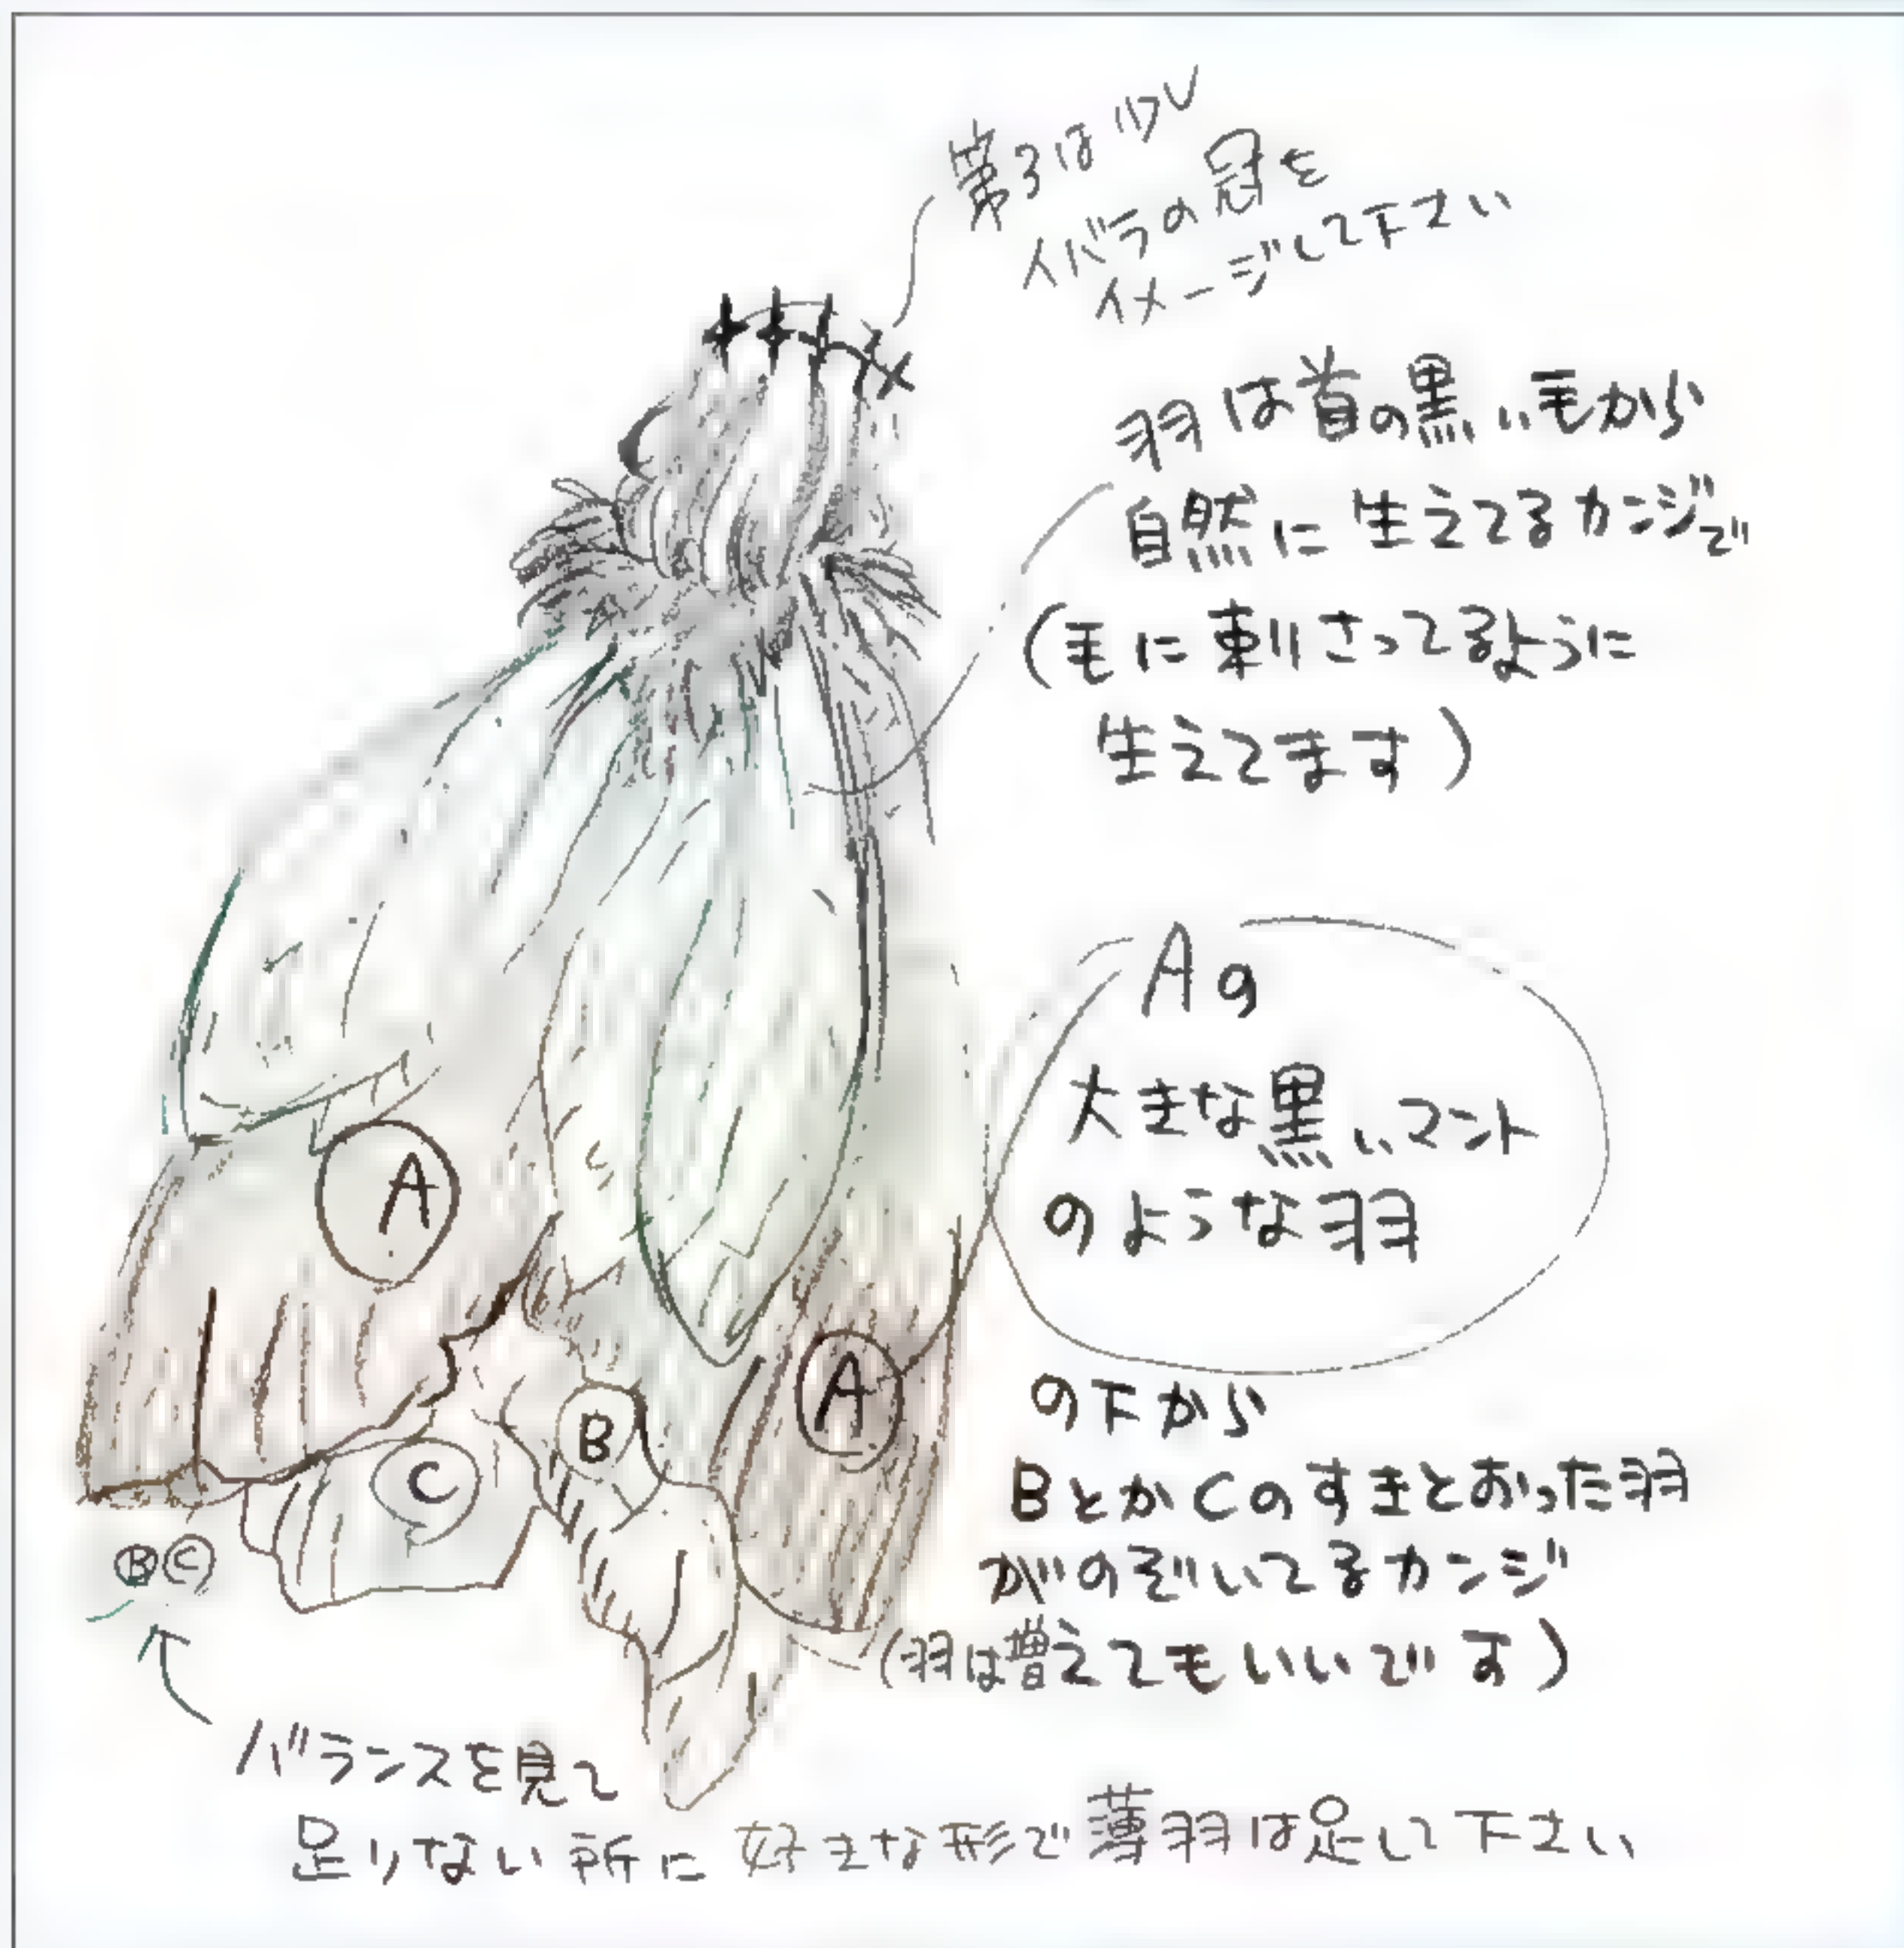 第3は
イバラの冠を
イメージして下さい
羽は首の黒い毛から
自然に生えてるカンジで
(毛に刺さってるように
生えてます)
Aの
大きな黒いマント
のような羽
の下から
BとかCのすきとおった羽
がのぞいてるカンジ
(羽は増えてもいいです)
A
A
B
C
B C
バランスを見て
足りない所に好きな形で薄羽は足して下さい